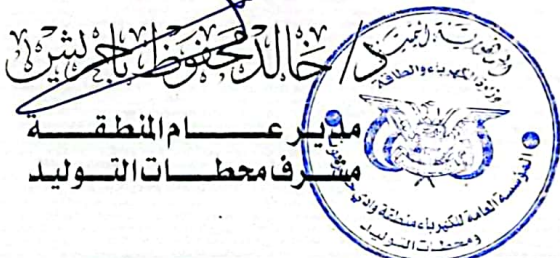 د/ خالد محفوظ باجريش
مدير عـــام المنطقـــة
مشرف محطـــات التـــوليد
الجمهورية اليمنية
وزارة الكهرباء والطاقة
المؤسسة العامة للكهرباء منطقة وادي
ومحطات التوليد